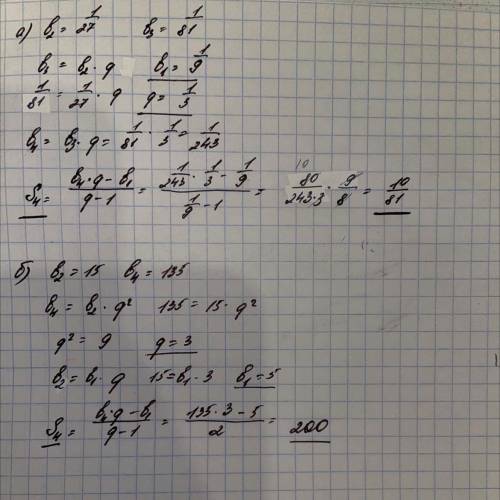 а) b₂ = 1/27 b₃ = 1/81
b₃ = b₂ · q b₁ = 1/9
1/81 = 1/27 · q q = 1/3
b₄ = b₃ · q = 1/81 · 1/3 = 1/243
S₄ = (b₄ · q - b₁)/(q - 1) = (1/243 · 1/3 - 1/9)/(1/9 - 1) = 80/(243·3) · 9/8 = 10/81
б) b₂ = 15 b₄ = 135
b₄ = b₂ · q² 135 = 15 · q²
q² = 9 q = 3
b₂ = b₁ · q 15 = b₁ · 3 b₁ = 5
S₄ = (b₄ · q - b₁)/(q - 1) = (135 · 3 - 5)/2 = 200